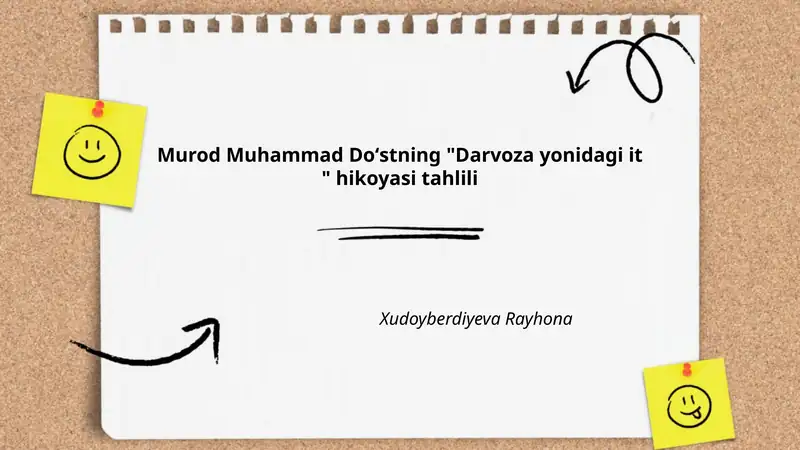 Murod Muhammad Do‘stning "Darvoza yonidagi it
" hikoyasi tahlili
Xudoyberdiyeva Rayhona